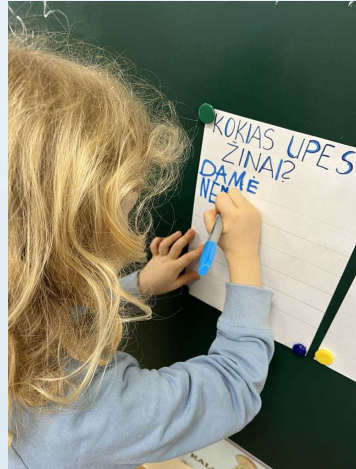 KOKIAS UPES
ŽINAI?
DAMĖ